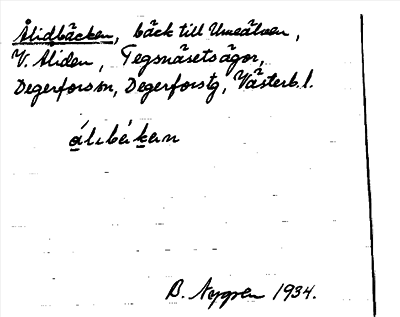 Ålidbäcken, bäck till Umeälven,
V. Åliden, Tegsnäsetsägor,
Degerfors sn, Degerforstg, Västerb. l.
álıbákan
B. Nygren 1934.